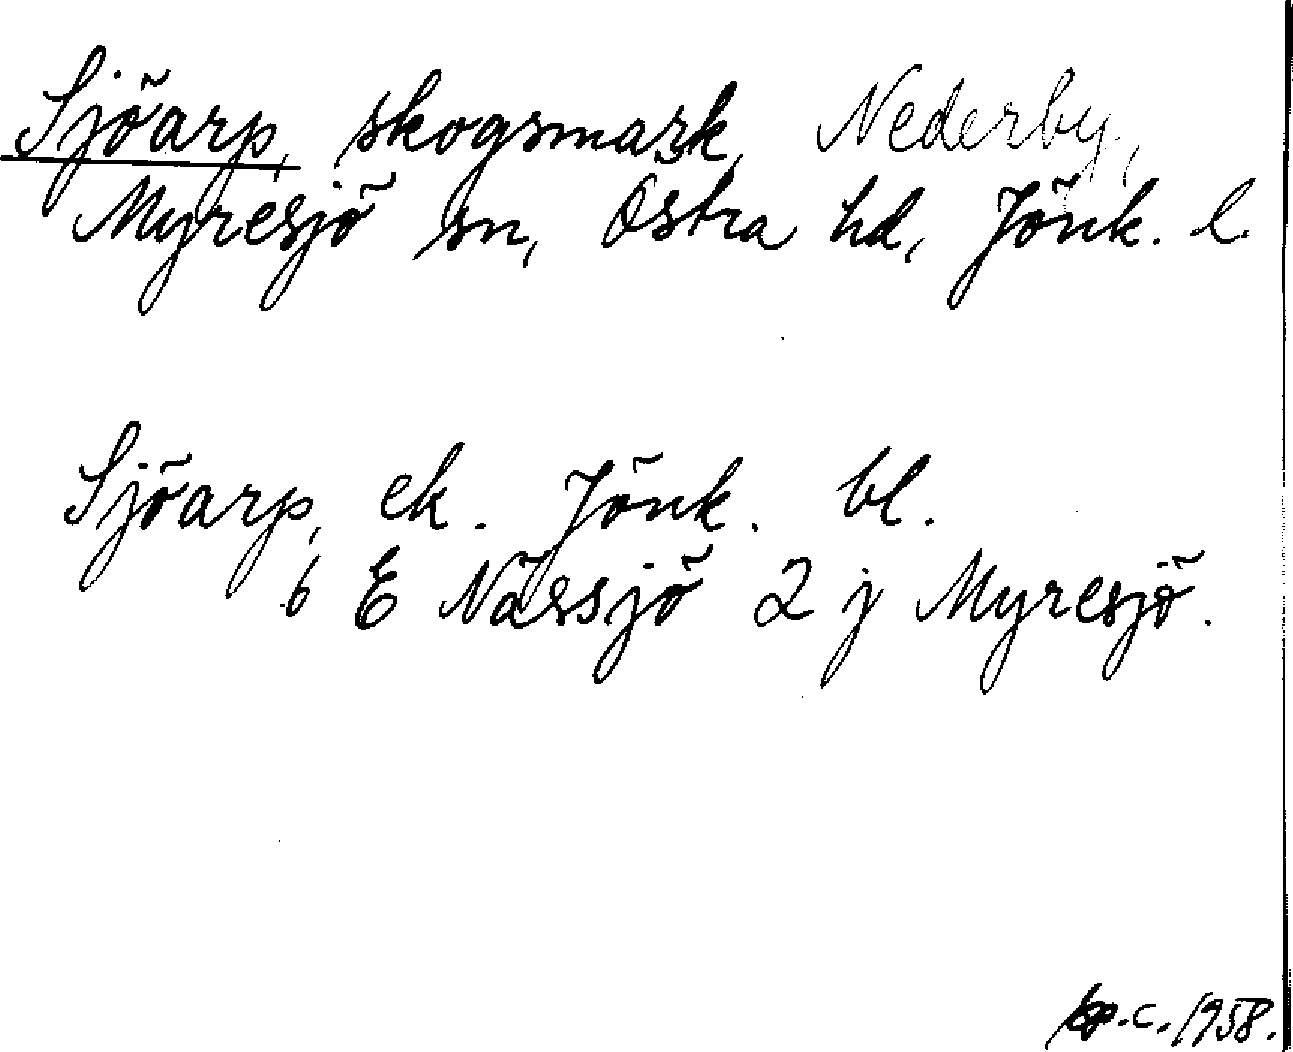 Sjöarp, skogsmark, Nederby,
Myresjö sn, Östra hd, Jönk. l
Sjöarp, ek. Jönk. bl.
6 E Nässjö 2 j Myresjö.
c. 1958.